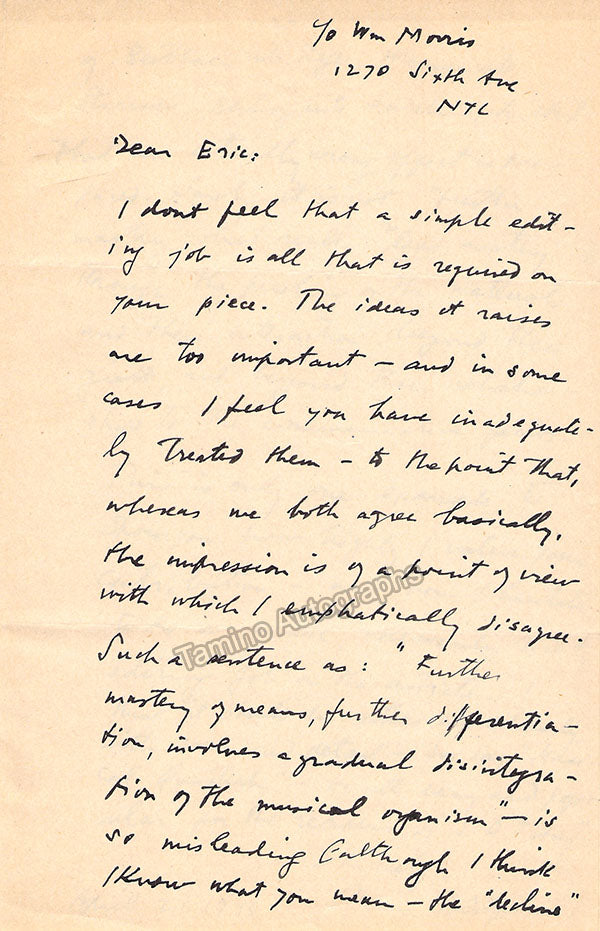 c/o Wm Morris
1270 Sixth Ave
NYC
Dear Eric:
I dont feel that a simple edit-
ing job is all that is required on
your piece. The ideas it raises
are too important - and in some
cases I feel you have inadequate-
ly treated them - to the point that,
whereas we both agree basically,
the impression is of a point of view
with which I emphatically disagree.
Tamino Autographs
Such a sentence as: "Further
mastery of means, further differentia-
tion, involves a gradual disintegra-
tion of the musical organism" - is
so misleading (although I think
I know what you mean - the "decline"